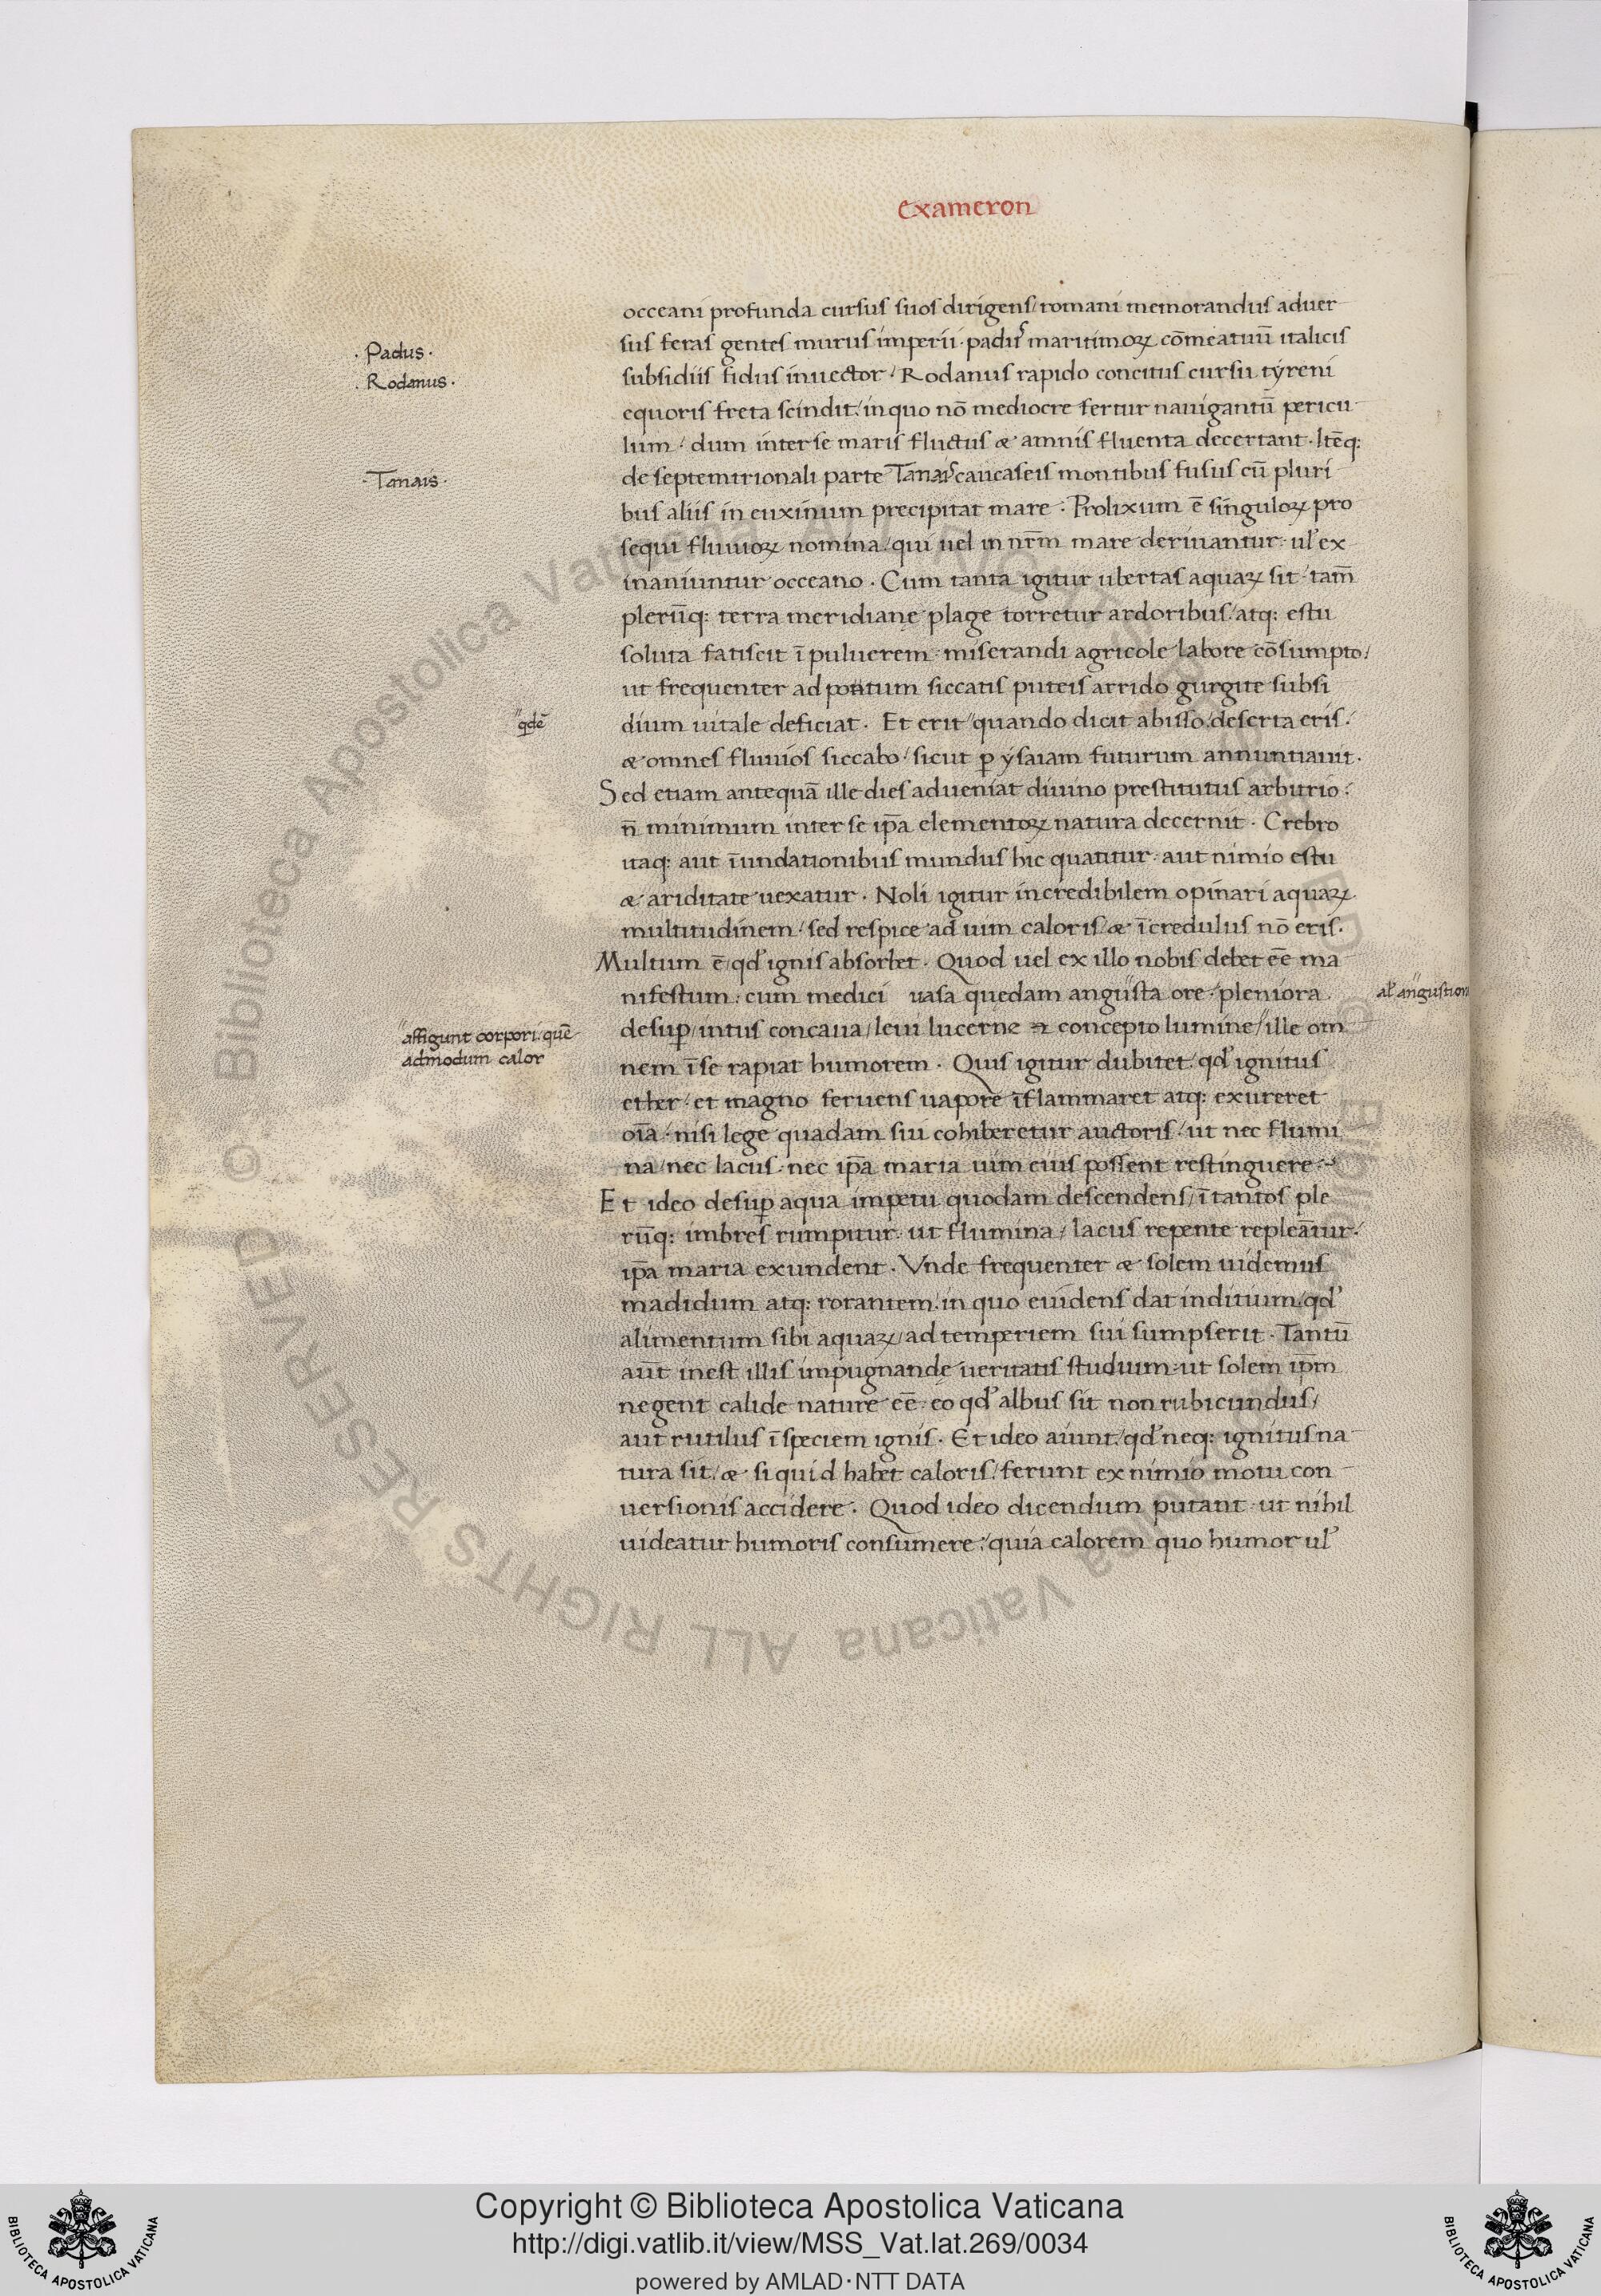 exameron
occeani profunda cursus suos dirigens/ romani memorandus aduer
sus feras gentes murus imperii. padus maritimoꝝ cōmeatuū italicis
· Padus ·
subsidiis fidus inuector. Rodanus rapido concitus cursu tyreni
· Rodanus ·
equoris freta scindit/ in quo nō mediocre fertur nauigantū pericu
lum. dum inter se maris fluctus & amnis fluenta decertant. Itēq:
de septemtrionali parte Tanais caucaseis montibus fusus cū pluri
· Tanais ·
bus aliis in euxinum precipitat mare. Prolixum ē singuloꝝ pro
sequi fluuioꝝ nomina/ qui uel in nr̄m mare deriuantur. ul' ex
inaniuntur occeano. Cum tanta igitur ubertas aquaꝝ sit. tam̄
plerūq: terra meridiane plage torretur ardoribus/ atq: estu
soluta fatiscit ī puluerem. miserandi agricole labore cōsumpto/
ut frequenter ad potum siccatis puteis arrido gurgite subsi
dium uitale deficiat. Et erit quando dicit abisso/ deserta eris.
qdē
& omnes fluuios siccabo/ sicut ꝑ ysaiam futurum annuntiauit.
Sed etiam antequā ille dies adueniat diuino prestitutus arbitrio:
n̄ minimum inter se ip̄a elementoꝝ natura decernit. Crebro
itaq: aut īundationibus mundus hic quatitur. aut nimio estu
& ariditate uexatur. Noli igitur incredibilem opinari aquaꝝ
multitudinem/ sed respice ad uim caloris/ & īcredulus nō eris.
Multum ē/ qd' ignis absorbet. Quod uel ex illo nobis debet eē ma
nifestum. cum medici uasa quedam angusta ore/ pleniora
al' angustion
desuꝑ/ intus concaua/ leui lucerne concepto lumine/ ille om
affigunt corpori. quē
admodum calor
nem ī se rapiat humorem. Quis igitur dubitet/ qd' ignitus
ether. et magno feruens uapore īflammaret atq: exureret
oīa. nisi lege quadam siu cohiberetur auctoris/ ut nec flumi
na/ nec lacus. nec ip̄a maria uim eius possent restinguere.
Et ideo desuꝑ aqua impetu quodam descendens/ ī tantos ple
rūq: imbres rumpitur. ut flumina/ lacus repente repleātur.
ip̄a maria exundent. Vnde frequenter & solem uidemus
madidum atq: rorantem. in quo euidens dat inditium/ qd'
alimentum sibi aquaꝝ/ ad temperiem sui sumpserit. Tantū
aūt inest illis impugnande ueritatis studium. ut solem ip̄m
negent calide nature eē. eo qd' albus sit non rubicundus/
aut rutilus ī speciem ignis. Et ideo aiunt/ qd' neq: ignitus na
tura sit/ & si quid habet caloris/ ferunt ex nimio motu con
uersionis accidere. Quod ideo dicendum putant ut nihil
uideatur humoris consumere: quia calorem quo humor ul'
© Biblioteca Apostolica Vaticana ALL RIGHTS RESERVED
Copyright © Biblioteca Apostolica Vaticana
http://digi.vatlib.it/view/MSS_Vat.lat.269/0034
powered by AMLAD·NTT DATA
BIBLIOTECA APOSTOLICA VATICANA
BIBLIOTECA APOSTOLICA VATICANA